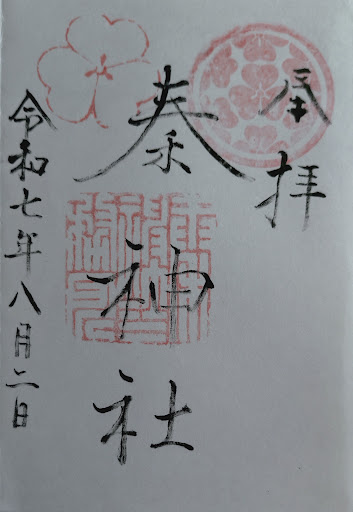 奉拝
秦神社
令和七年八月二日